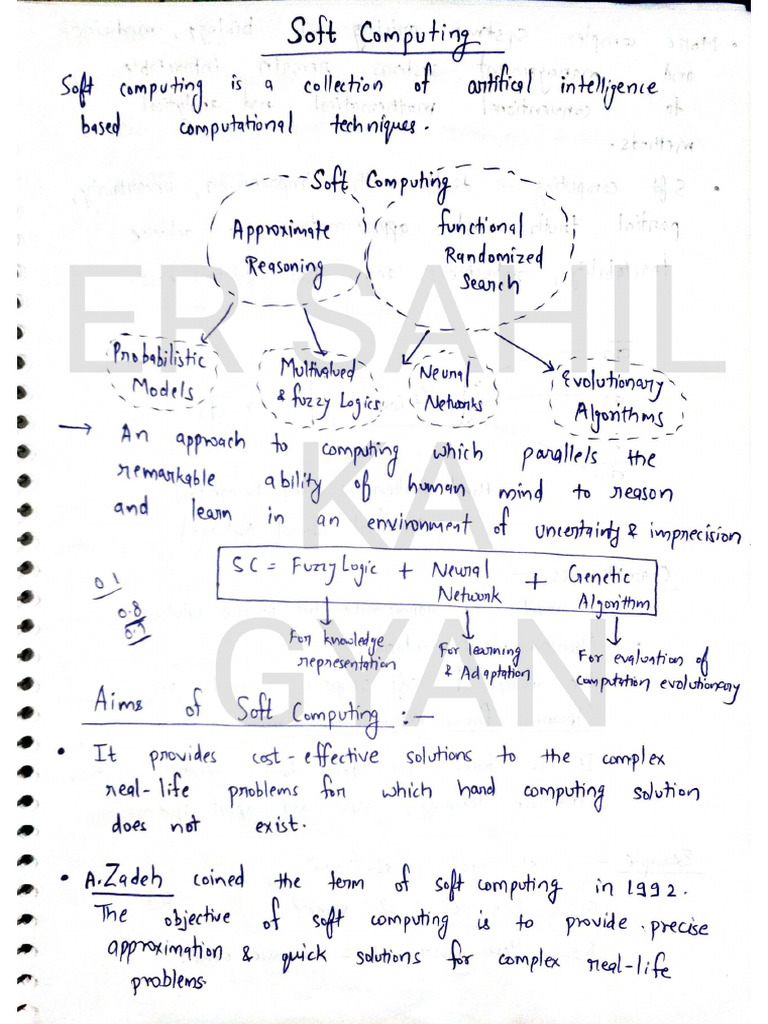 Soft Computing
Soft computing is a collection of artifical intelligence
based computational techniques.
Soft Computing
Approximate
Reasoning
functional
Randomized
Search
Probabilistic
Models
Multivalued
& fuzzy Logics
Neural
Networks
Evolutionary
Algorithms
→ An approach to computing which parallels the
remarkable ability of human mind to reason
and learn in an environment of uncertainty & imprecision
SC = Fuzzy Logic + Neural Network + Genetic Algorithm
0 1
0.8
0.7
For knowledge
representation
For learning
& Adaptation
For evaluation of
computation evolutionary
Aims of Soft Computing :-
• It provides cost-effective solutions to the complex
real-life problems for which hand computing solution
does not exist.
• A. Zadeh coined the term of soft computing in 1992.
The objective of soft computing is to provide precise
approximation & quick solutions for complex real-life
problems.
ER SAHIL
KA
GYAN